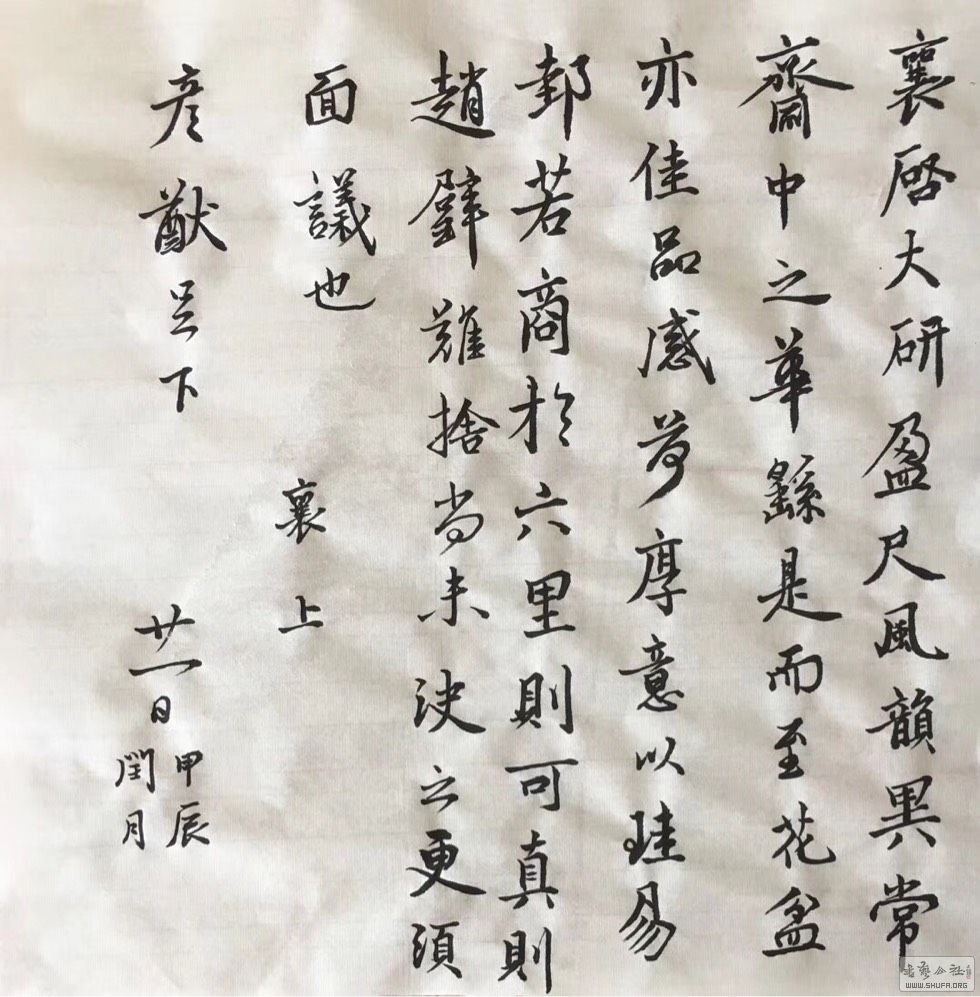 襄啓大研盈尺風韻異常
齋中之華繇是而至花盆
亦佳品感荷厚意以珪易
邽若商於六里則可真則
趙璧難捨尚未決之更須
面議也 襄上
彦猷足下 廿一日甲辰
閏月
書藝公社
WWW.SHUFA.ORG